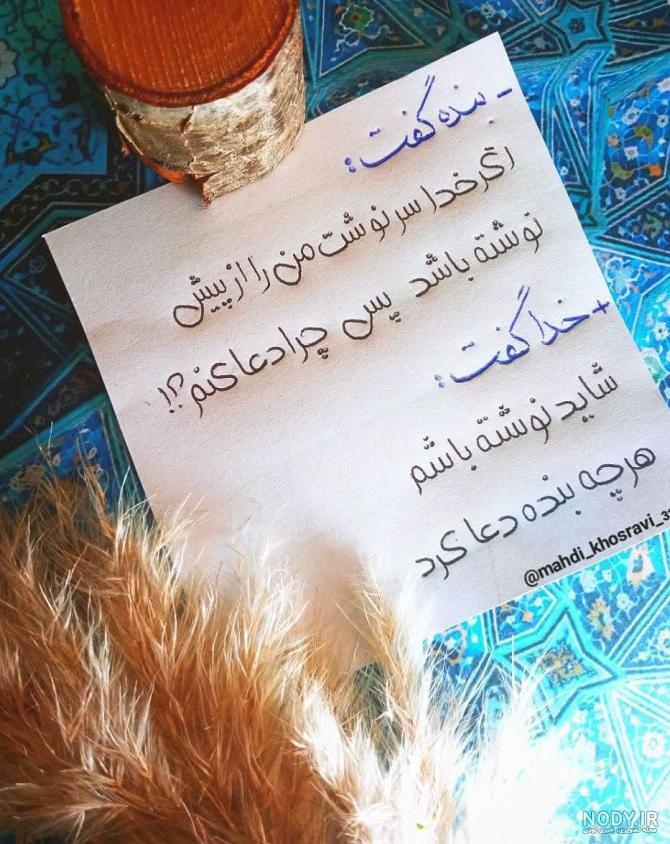 - بنده گفت:
اگر خدا سرنوشت من را از پیش
نوشته باشد پس چرا دعا کنم؟!
+ خدا گفت:
شاید نوشته باشم
هرچه بنده دعا کرد
@mahdi_khosravi_3
NODY.IR